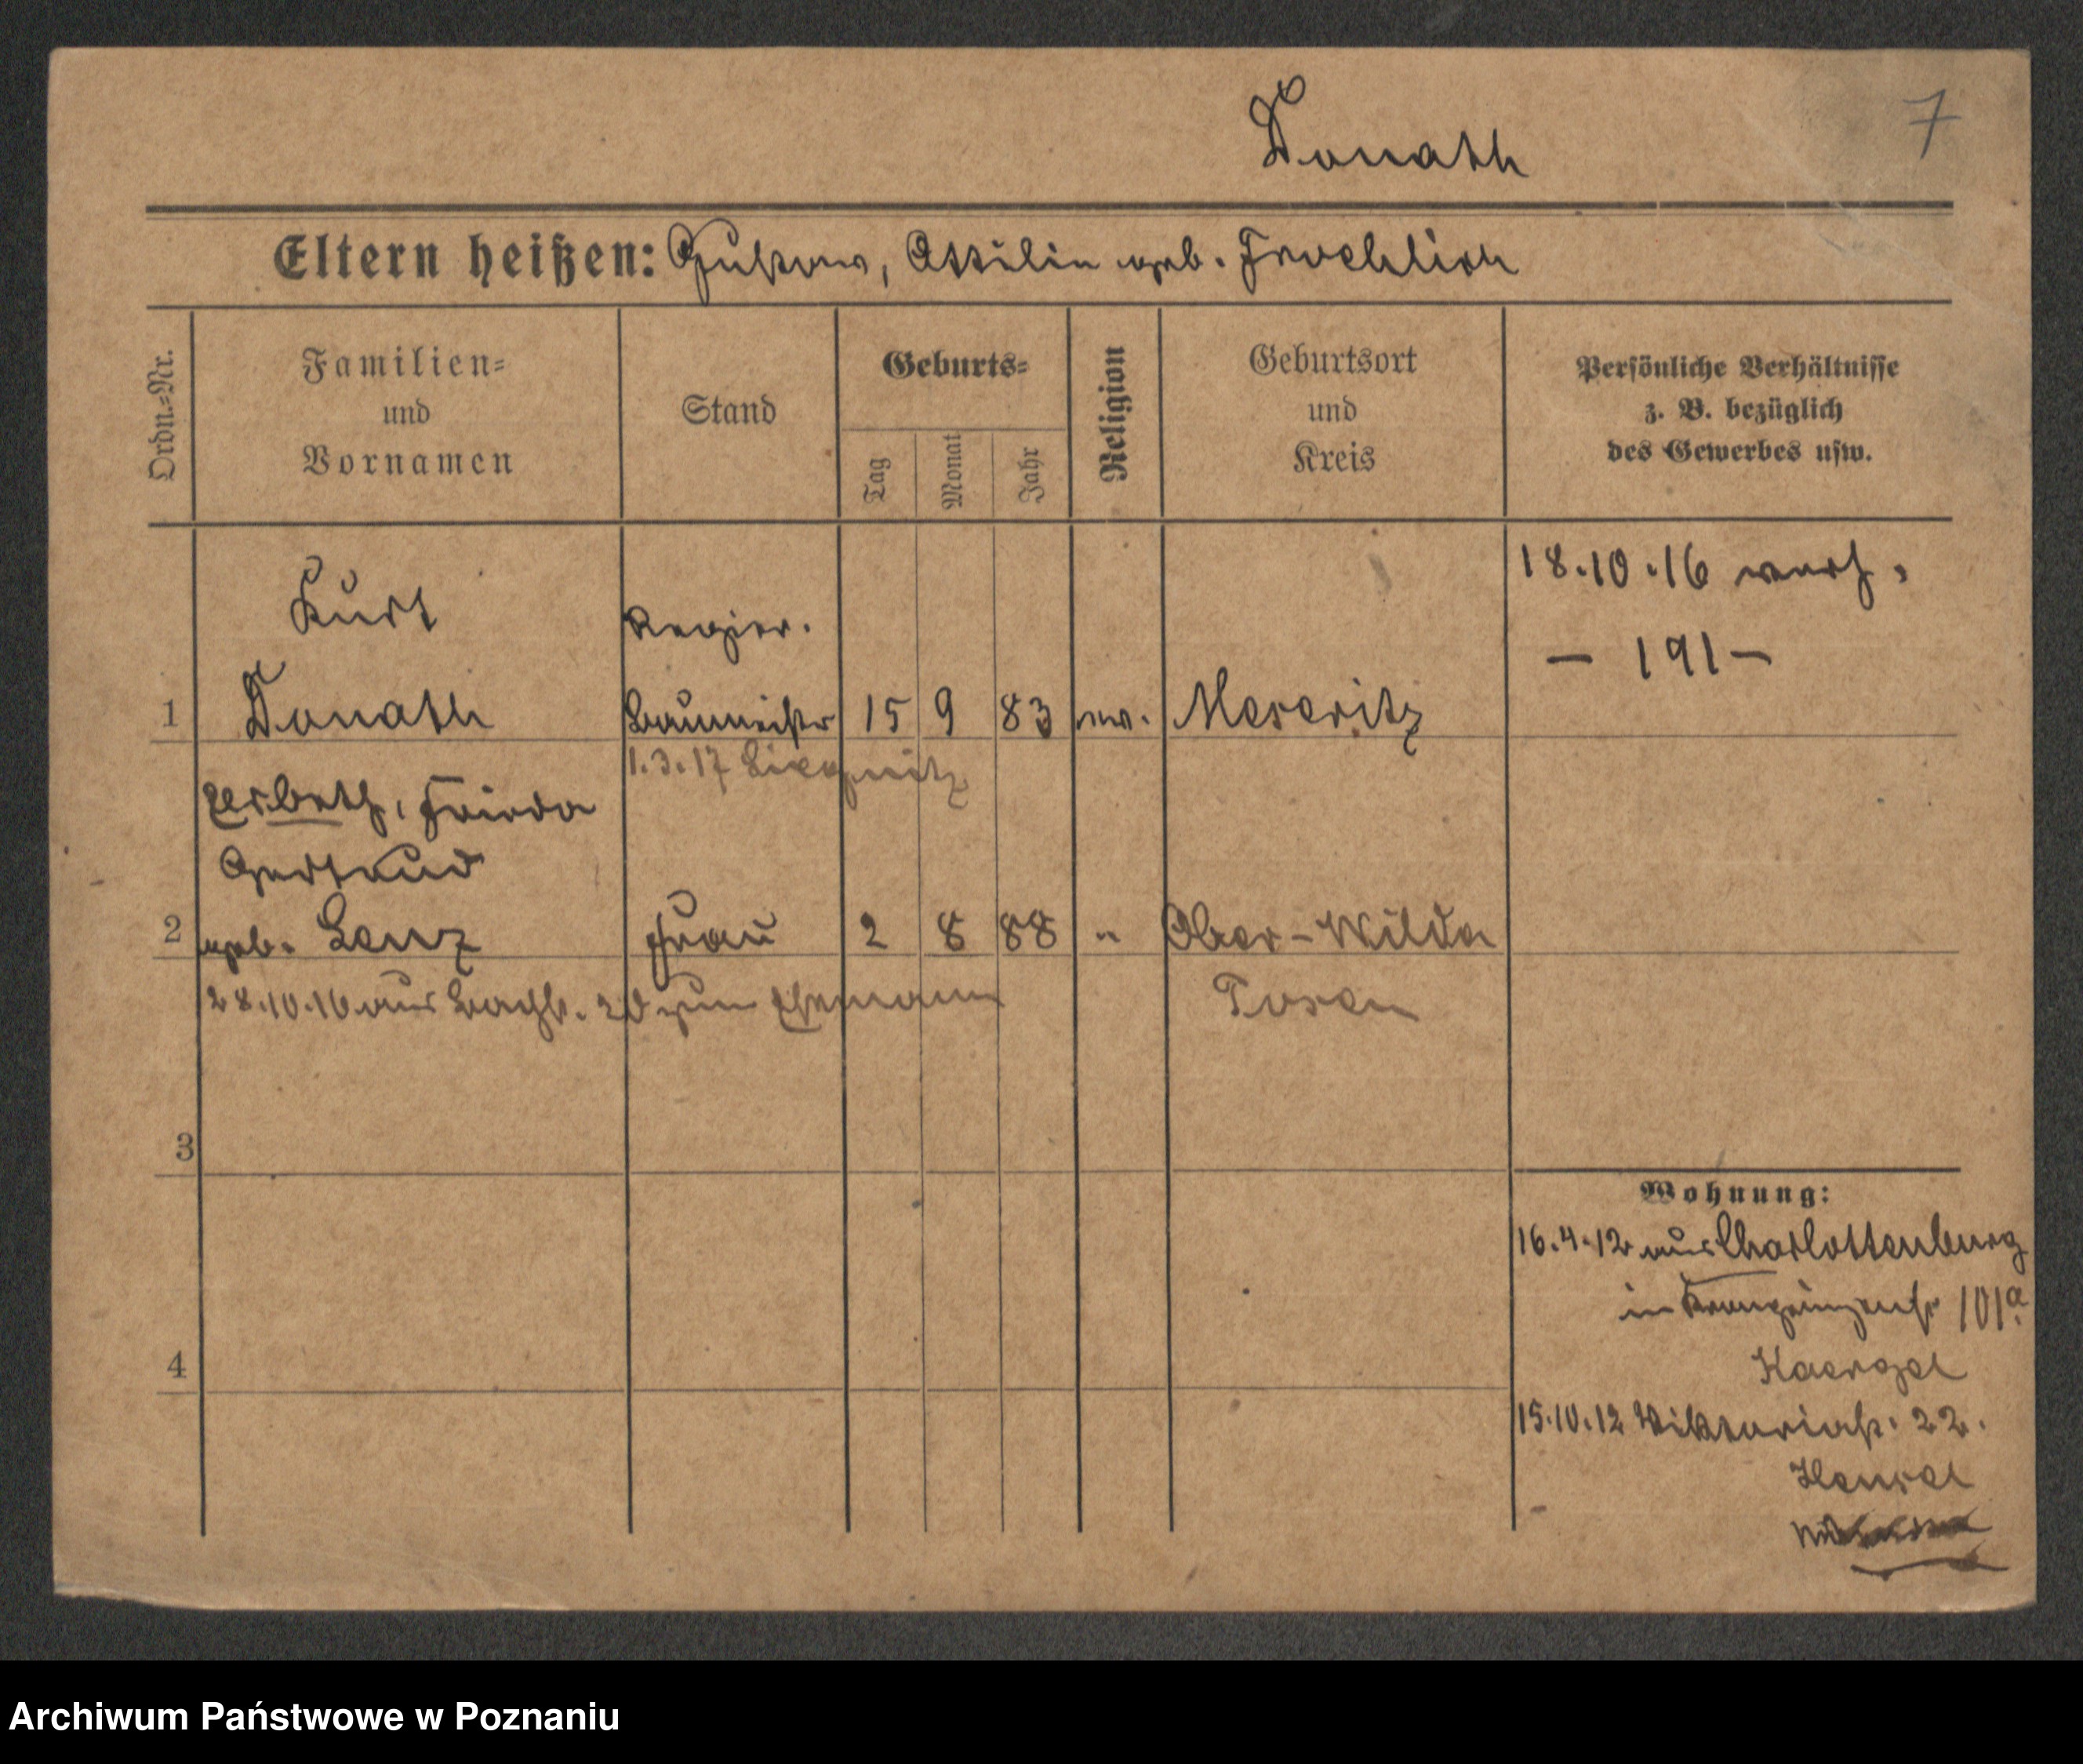 Donath
7
Eltern heißen: Gustav, Ottilie geb. Froehlich
Ordn.=Nr.
Familien=
und
Vornamen
Stand
Geburts=
Tag
Monat
Jahr
Religion
Geburtsort
und
Kreis
Persönliche Verhältnisse
z. B. bezüglich
des Gewerbes usw.
Kurt
Regier.
18.10.16 verh.
— 191 —
1 Donath Baumeister 15 9 83 ev. Meseritz
1.3.17 Liegnitz
Elsbeth, Frieda
Gertrud
2 geb. Lenz Frau 2 8 88 " Ober-Wilda
28.10.16 aus 20 zum Ehemann Posen
3
Wohnung:
16.4.12 aus Charlottenburg
in Kronprinzenstr 101a.
4
Kaergel
15.10.12 Viktoriastr. 22.
Hensel
Archiwum Państwowe w Poznaniu